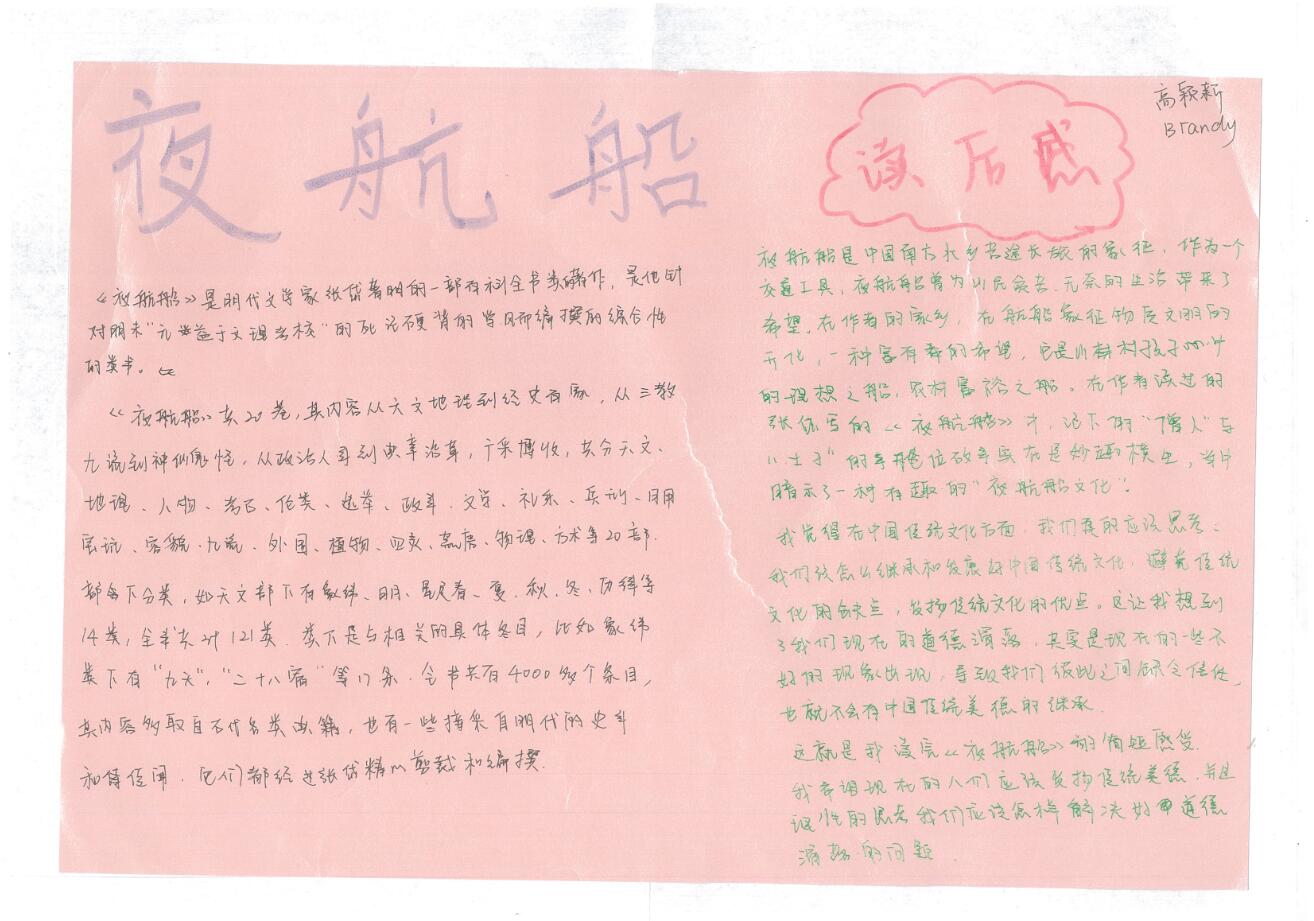 夜航船
《夜航船》是明代文学家张岱著明的一部百科全书类著作，是他针
对明末"无益于文理考校"的死记硬背的学风而编撰的综合性
的类书。
《夜航船》共20卷，其内容从天文地理到经史百家，从三教
九流到神仙鬼怪，从政治人事到典章沿革，广采博收，共分天文、
地理、人物、考古、伦类、选举、政事、文学、礼乐、兵刑、日用
宝玩、容貌、九流、外国、植物、四灵、荒唐、物理、方术等20部.
部各下分类，如天文部下有象纬、日月、星辰春、夏、秋、冬、历律等
14类，全书共计121类. 类下是与相关的具体条目，比如象纬
类下有"九天"，"二十八宿"等17条. 全书共有4000多个条目，
其内容多取自古代各类典籍，也有一些摘采自明代的史事
和传闻. 它们都经过张岱精心剪裁和编撰.
高颖新
Brandy
读后感
夜航船是中国南方水乡苦途长旅的象征. 作为一个
交通工具，夜航船曾为山民贫苦、无奈的生活带来了
希望. 在作者的家乡，夜航船象征物质文明的
开化，一种富有的希望，它是山村孩子
的理想之船，农村富裕之船。在作者读过的
张岱写的《夜航船》中，记下的"僧人"与
"士子"的故事实在是妙趣横生，
暗示了一种有趣的"夜航船文化".
我觉得在中国传统文化方面，我们真的应该思考、
我们该怎么继承和发展好中国传统文化，避免传统
文化的缺点，发扬传统文化的优点。这让我想到
了我们现在的道德滑落，其实是现在的一些不
好的现象出现，导致我们彼此之间缺乏信任，
也就不会有中国传统美德的继承.
这就是我读完《夜航船》的感受.
我希望现在的人们应该发扬传统美德，并且
理性的思考我们应该怎样解决好道德
滑落的问题.